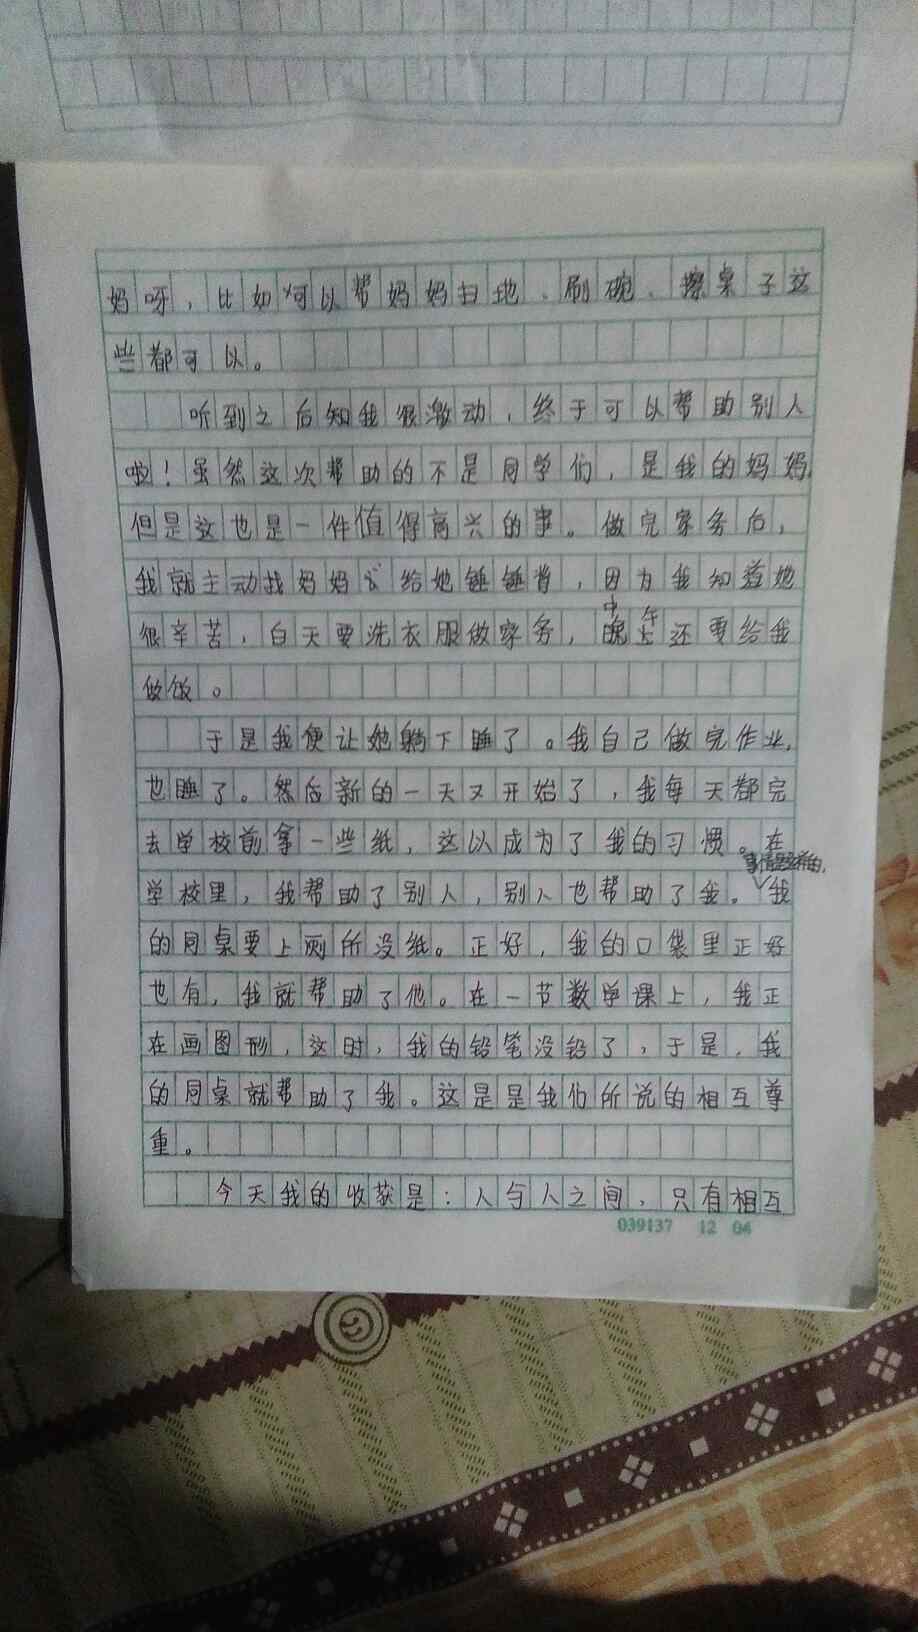 妈呀，比如可以帮妈妈扫地、刷碗、擦桌子这
些都可以。
听到之后知我很激动，终于可以帮助别人
啦！虽然这次帮助的不是同学们，是我的妈妈，
但是这也是一件值得高兴的事。做完家务后，
我就主动找妈妈给她锤锤背，因为我知道她
很辛苦，白天要洗衣服做家务，中午还要给我
做饭。
于是我便让她躺下睡了。我自己做完作业，
也睡了。然后新的一天又开始了，我每天都完
去学校前拿一些纸，这以成为了我的习惯。在
学校里，我帮助了别人，别人也帮助了我。事情是这样的，我
的同桌要上厕所没纸。正好，我的口袋里正好
也有，我就帮助了他。在一节数学课上，我正
在画图形，这时，我的铅笔没铅了，于是，我
的同桌就帮助了我。这是是我们所说的相互尊
重。
今天我的收获是：人与人之间，只有相互
039137 12 04